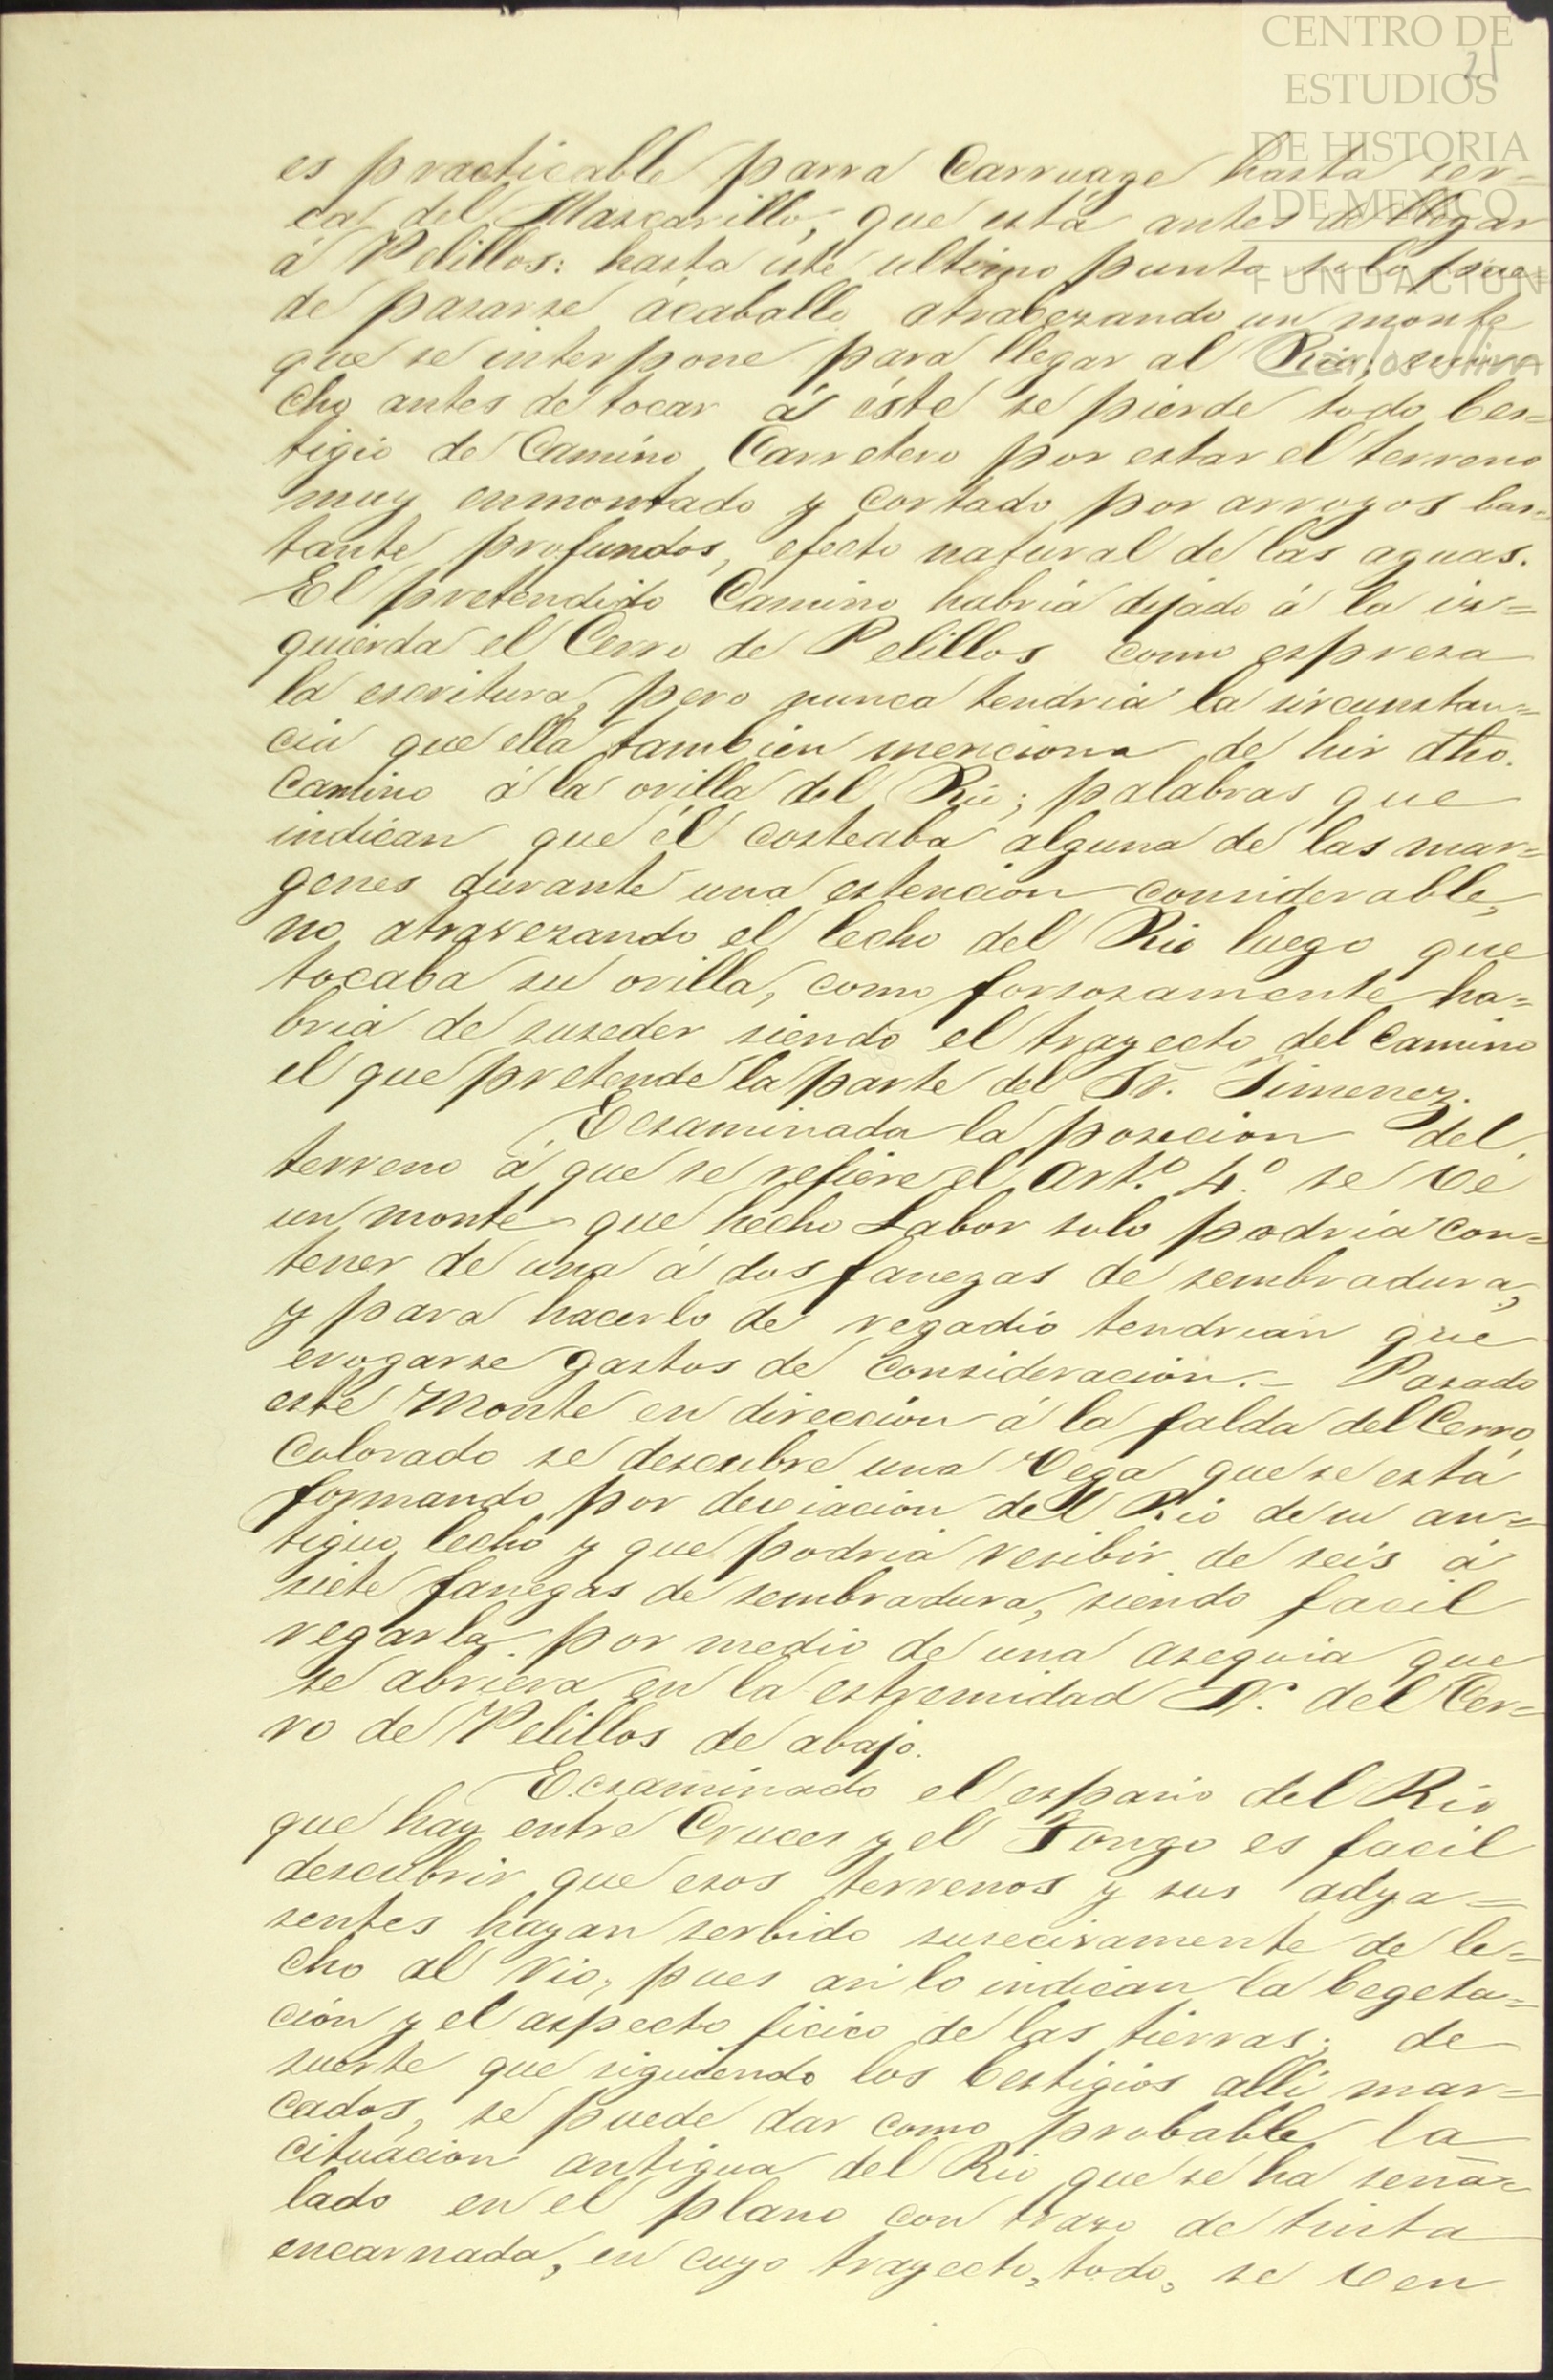 CENTRO DE
ESTUDIOS
DE HISTORIA
DE MEXICO
FUNDACION
Carlos Slim
21
es practicable parra Carruage hasta ser-
ca del Mascarillo, que está antes de llegar
á Pelillos: hasta éste ultimo punto solo pue-
de pasarse ácaballo atrabezando un monte
que se interpone para llegar al Rio; mu-
cho antes de tocar á éste se pierde todo bes=
tigio de Camino Carretero por estar el terreno
muy enmontado y cortado por arroyos bas=
tante profundos, efecto natural de las aguas.
El pretendido Camino habria dejado á la is=
quierda el Cerro de Pelillos como espresa
la escritura, pero nunca tendria la sircunstan=
cia que ella tambien menciona de hir dho.
Camino á la orilla del Rio; palabras que
indican que él costeaba alguna de las mar=
genes durante una estencion considerable,
no atravezando el lecho del Rio luego que
tocaba su orilla, como forsosamente ha=
bria de suseder siendo el trayecto del Camino
el que pretende la parte del Sr. Jimenez.
Ecsaminada la posicion del
terreno á que se refiere el Art.º 4.º se ve
un monte que hecho Labor solo podria con=
tener de una á dos fanegas de sembradura,
y para hacerlo de regadio tendrian que
erogarse gastos de consideracion.- Pasado
este Monte en direccion á la falda del Cerro
Colorado se descubre una Vega que se está
formando por deciacion del Rio de su an=
tiguo lecho y que podria resibir de seis á
siete fanegas de sembradura, siendo facil
regarla por medio de una asequia que
se abriera en la estremidad N. del Cer=
ro de Pelillos de abajo.
Ecsaminado el espasio del Rio
que hay entre Cruces y el Tongo es facil
descubrir que esos terrenos y sus adya=
sentes hayan serbido susecivamente de le=
cho al rio, pues asi lo indican la begeta=
ción y el aspecto ficico de las tierras; de
suerte que siguiendo los bestigios alli mar=
cados, se puede dar como probable la
cituacion antigua del Rio que se ha seña=
lado en el plano con traso de tinta
encarnada, en cuyo trayecto, todo, se ven